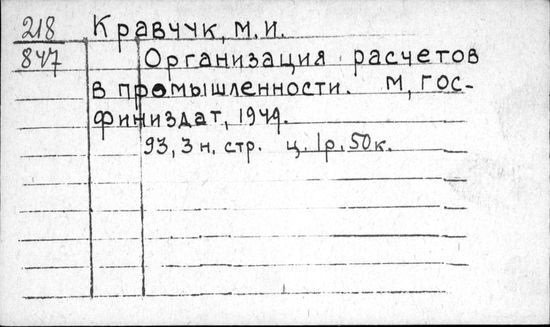 218 Кравчук, М.И.
847 Организация расчетов
в промышленности. М, Гос-
финиздат, 1949.
93, 3 н. стр. ц. 1р. 50к.